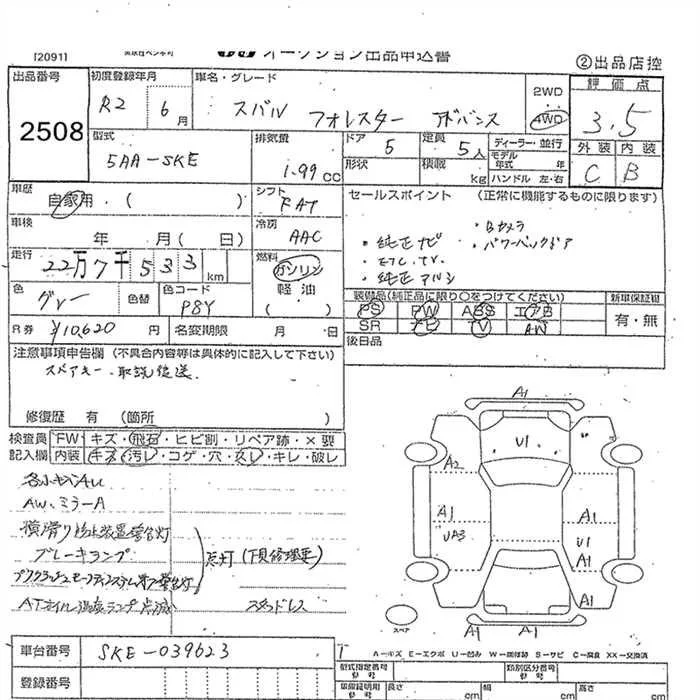 [2091]
オークション出品申込書
②出品店控
出品番号
2508
初度登録年月
R2 6月
車名・グレード
スバル フォレスター アドバンス
2WD
4WD
評価点
3.5
外装 内装
C B
型式
5AA-SKE
排気量
1.99cc
ドア 5
形状
定員 5人
積載 kg
ディーラー・並行
モデル年式 年
ハンドル 左・右
車歴
自家用・( )
シフト
FAT
セールスポイント (正常に機能するものに限ります)
・Bカメラ
・純正ナビ ・パワーバックドア
・ETC.TV.
・純正アルミ
車検
年 月( 日)
冷房
AAC
走行
22万7千533km
燃料
ガソリン
軽油
( )
色
グレー
色替
色コード
P8Y
装備品(純正品に限り○をつけてください)
PS PW ABS エアB
SR ナビ TV AW
新車保証書
有・無
R券 ¥10,620円
名変期限 月 日
後日品
注意事項申告欄 (不具合内容等は具体的に記入して下さい)
スペアキー・取説後送.
修復歴 有 (箇所 )
検査員記入欄
FW キズ・飛石・ヒビ割・リペア跡・×要
内装 キズ・汚レ・コゲ・穴・スレ・キレ・破レ
各小キズAU
AW、ミラーA
横滑り防止装置警告灯
ブレーキランプ
点灯 (下見修理要)
ATオイル温度ランプ点滅
スタッドレス
A1
U1
A2
A1
UA3
A1
A1
U1
A1
A1
A1
スペア
A-キズ E-エクボ U-凹み W-補修跡 S-サビ C-腐食 XX-交換済
車台番号
SKE-039623
登録番号
型式指定番号
類別区分番号
長さ cm
幅 cm
高さ cm